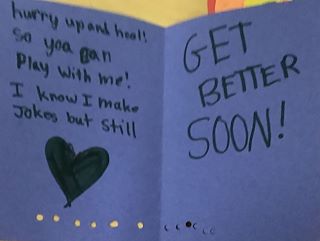 hurry up and heal!
So you can
Play with me!
I know I make
Jokes but still
GET
BETTER
SOON!